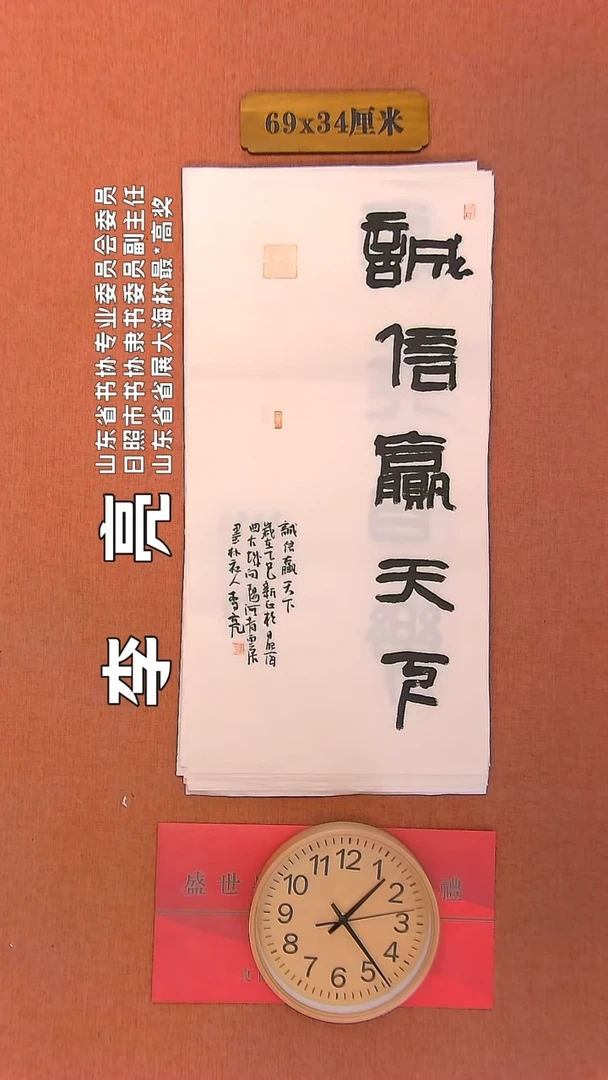 69x34厘米
誠信贏天下
誠信贏天下
歲在乙巳新正於日照海
曲古城向陽河青雲居
墨朴社人李亮
李亮
山东省书协专业委员会委员
日照市书协隶书委员副主任
山东省省展大海杯最*高奖
盛世
禮
12
1
2
3
4
5
6
7
8
9
10
11